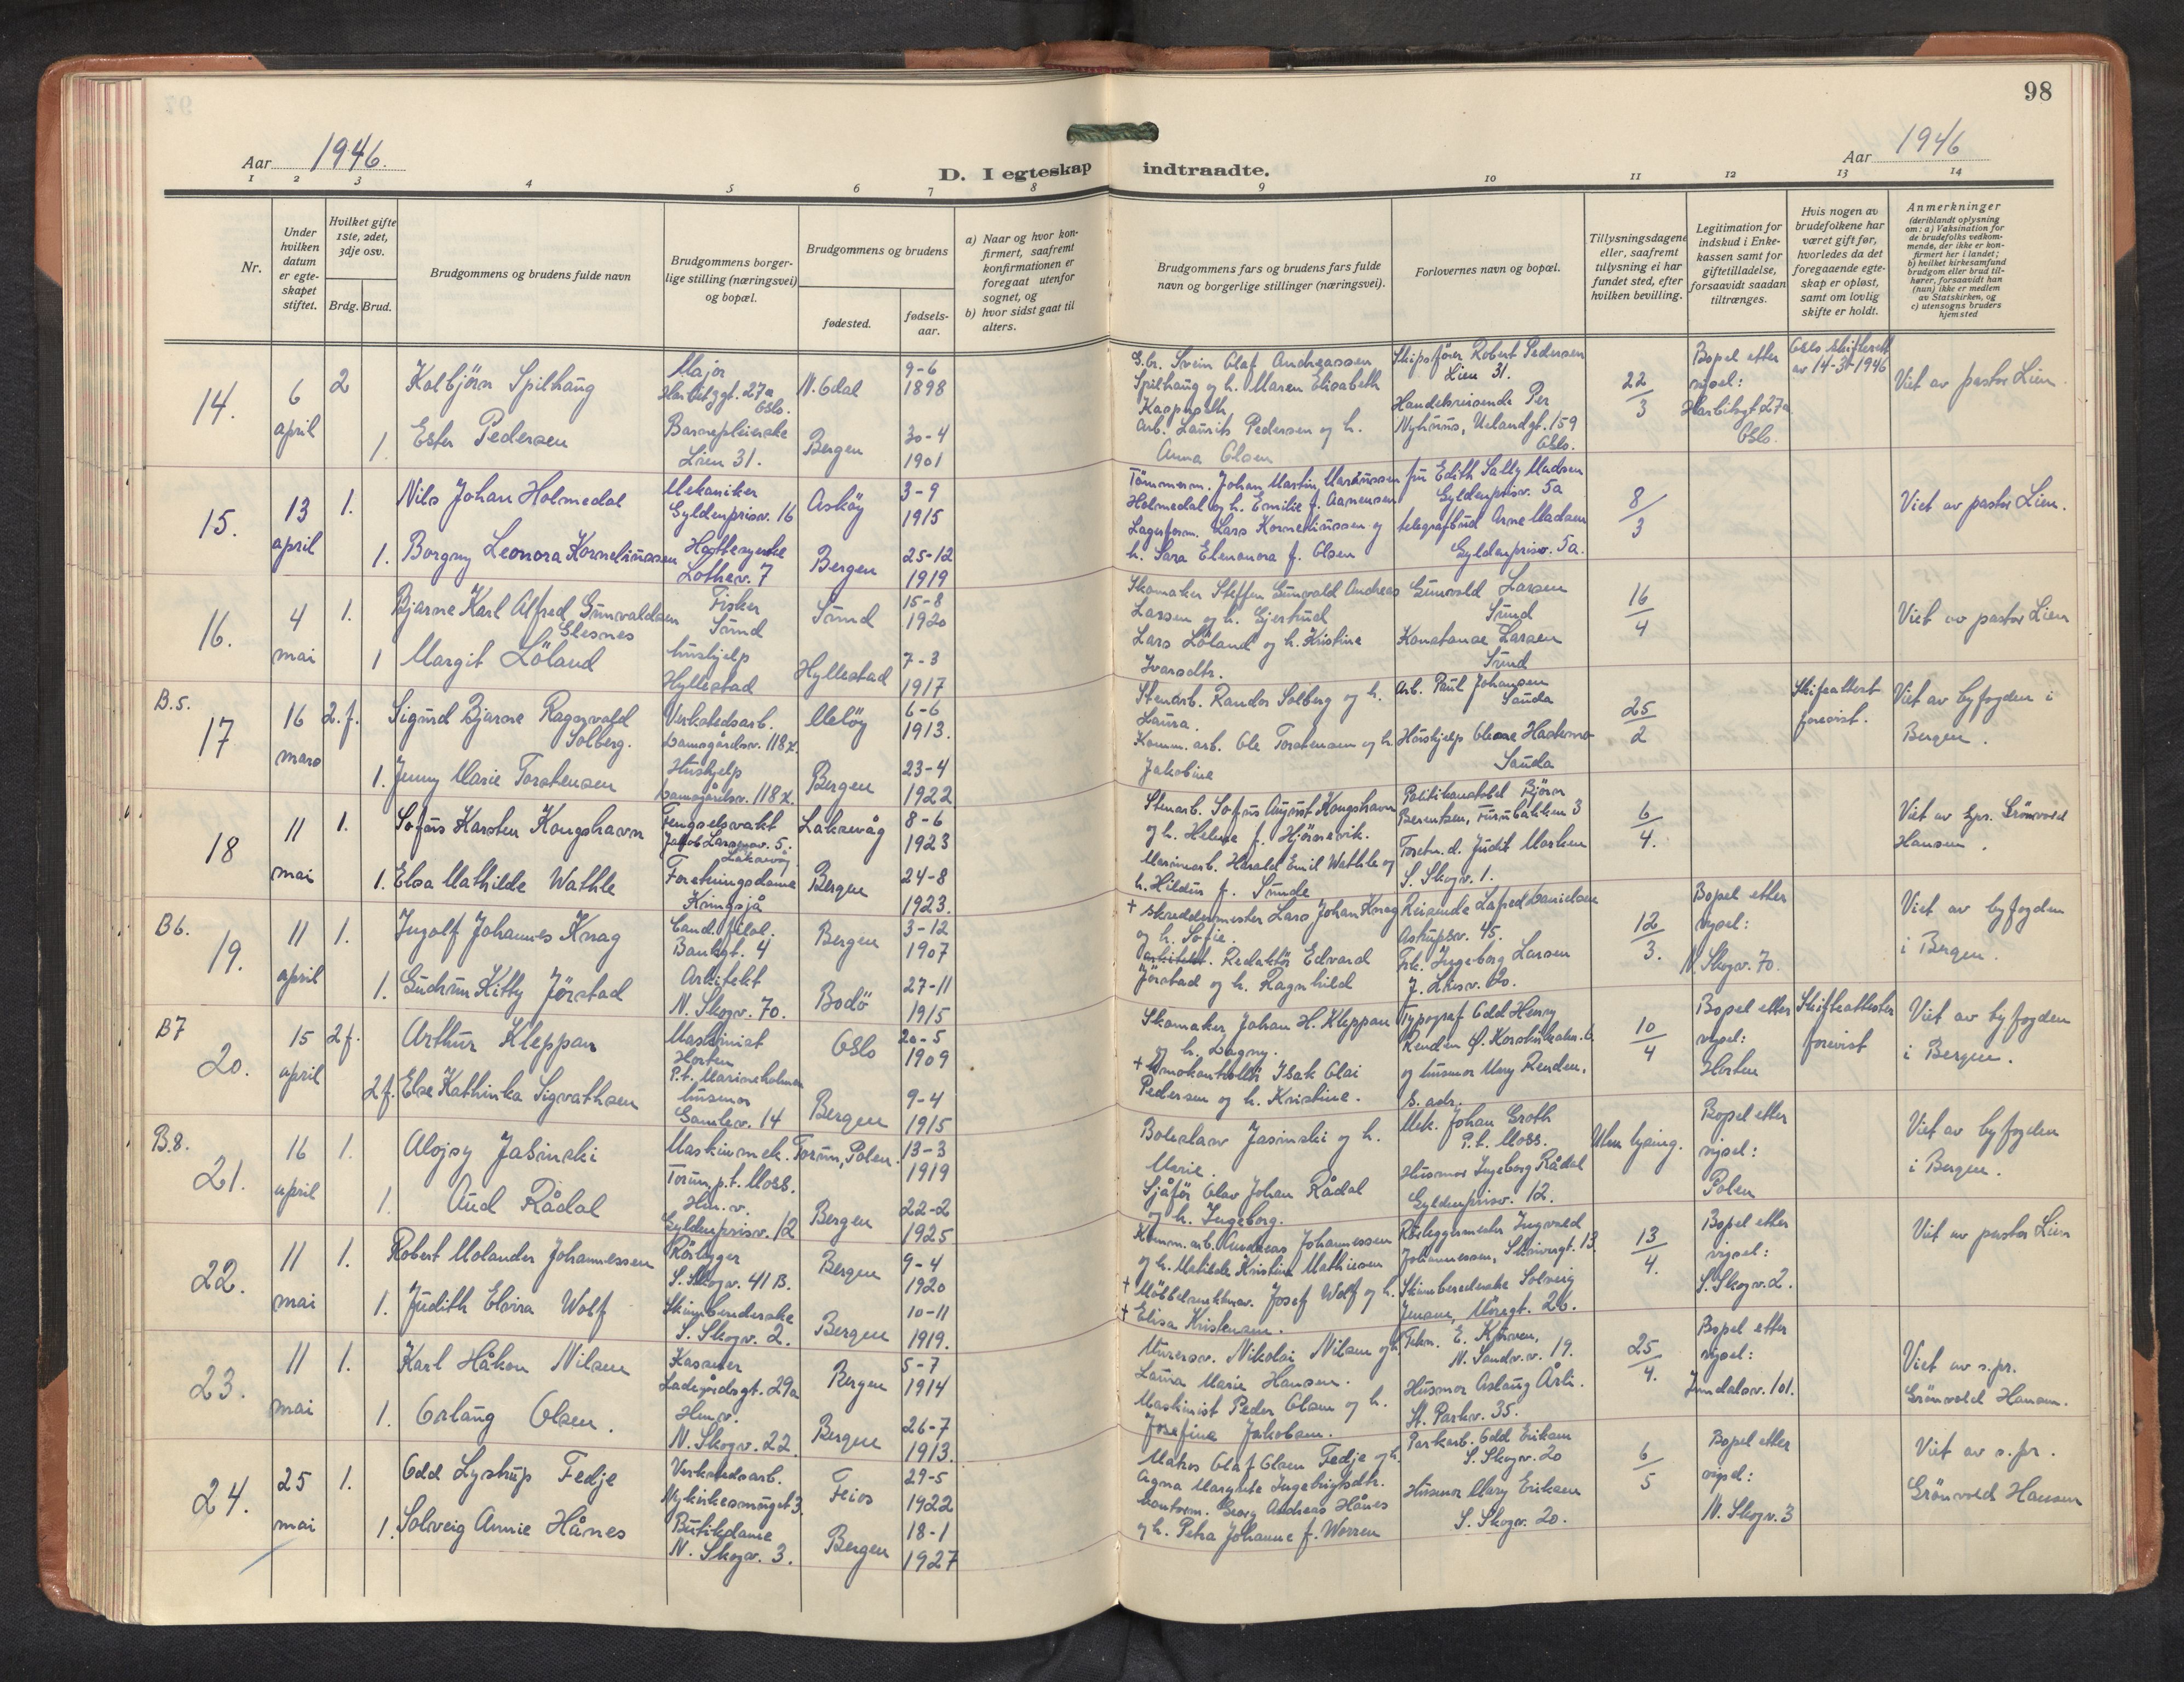 98
Aar 1946.
D. I egteskap indtraadte.
Aar 1946
1 2 3 4 5 6 7 8 9 10 11 12 13 14
Nr.
Under hvilken datum er egteskapet stiftet.
Hvilket gifte 1ste, 2det, 3dje osv.
Brdg. Brud.
Brudgommens og brudens fulde navn
Brudgommens borgerlige stilling (næringsvei) og bopæl.
Brudgommens og brudens
fødested.
fødselsaar.
a) Naar og hvor konfirmert, saafremt konfirmationen er foregaat utenfor sognet, og
b) hvor sidst gaat til alters.
Brudgommens fars og brudens fars fulde navn og borgerlige stillinger (næringsvei).
Forlovernes navn og bopæl.
Tillysningsdagene eller, saafremt tillysning ei har fundet sted, efter hvilken bevilling.
Legitimation for indskud i Enkekassen samt for giftetilladelse, forsaavidt saadan tiltrænges.
Hvis nogen av brudefolkene har været gift før, hvorledes da det foregaaende egteskap er opløst, samt om lovlig skifte er holdt.
Anmerkninger
(deriblandt oplysning om: a) Vaksination for de brudefolks vedkommende, der ikke er konfirmert her i landet; b) hvilket kirkesamfund brudgom eller brud tilhører, forsaavidt han (hun) ikke er medlem av Statskirken, og c) utensogns bruders hjemsted
14. 6 april 2 Kolbjörn Spilhaug Major Harbitzgt. 27a Oslo. N. Odal 9-6 1898
1. Ester Pedersen Barnepleierske Lien 31. Bergen 30-4 1901
G.br. Svein Olaf Andreassen Spilhaug og h. Maren Elisabeth
Arb. Laurits Pedersen og h. Anna Olsen
Skipsfører Robert Pedersen Lien 31.
Handelsreisende Per Nyhuus, Uelandgt. 159 Oslo.
22/3
Bopel etter vigsel: Harbitzgt 27a Oslo.
Oslo skifterett av 14-3-1946
Viet av pastor Lien.
15. 13 april 1. Nils Johan Holmedal Mekaniker Gyldenprisv. 16 Asköy 3-9 1915
1. Borgny Leonora Korneliussen Hattesyerske Lothev. 7 Bergen 25-12 1919
Tömmerm. Johan Martin Mariussen Holmedal og h. Emilie f. Aanensen
Lagerform. Lars Korneliussen og h. Sara Elenora f. Olsen
fru Edith Sally Madsen Gyldenprisv. 5a
telegrafbud Arne Madsen Gyldenprisv. 5a.
8/3
Viet av pastor Lien.
16. 4 mai 1. Bjarne Karl Alfred Gunvaldsen Glesnes Fisker Sund Sund 15-8 1920
1 Margit Löland hushjelp Hyllestad Hyllestad 7-3 1917
Skomaker Steffen Gunvald Andreas Larsen og h. Gjertrud
Lars Löland og h. Kristine Ivarsdtr.
Gunvald Larsen Sund
Konstanse Larsen Sund
16/4
Viet av pastor Lien
B.5.
17 16 mars 2.f. Sigurd Bjarne Ragnvald Solberg. Verkstedsarb. Damsgårdsv. 118 Melöy 6-6 1913.
1. Jenny Marie Torstensen Hushjelp Damsgårdsv. 118 Bergen 23-4 1922
Stenarb. Randor Solberg og h. Laura.
Komm. arb. Ole Torstensen og h. Jakobine
Arb. Paul Johansen Sauda
Hushjelp Sauda
25/2
Skifteattest forevist.
Viet av byfogden i Bergen.
18 11 mai 1. Sofus Karsten Kongshavn Fengselsvakt Jakob Larsensv. 5. Laksevåg Laksevåg 8-6 1923
1. Elsa Mathilde Wathle Forretningsdame Kringsjå Bergen 24-8 1923.
Stenarb. Sofus August Kongshavn og h. Helene f. Hjörnevik.
Marinearb. Harald Emil Wathle og h. Hildur f. Sunde
Politikonstabel Björn Berentsen, Furubakken 3
Forretn.d. Judit Marken S. Skogv. 1.
6/4.
Viet av spr. Grönvold Hansen.
B6.
19. 11 april 1. Ingolf Johannes Knag Cand. filol. Bankgt. 4 Bergen 3-12 1907
1. Gudrun Kitty Jörstad Arkitekt N. Skogv. 70. Bodö 27-11 1915
+ Skreddermester Lars Johan Knag og h. Sofie.
Redaktör Edvard Jörstad og h. Ragnhild
Reisende Danielsen Astrupsv. 45.
Frk. Ingeborg Larsen J. Liesv. 20.
12/3.
Bopel etter vigsel: N. Skogv. 70.
Viet av byfogden i Bergen.
B7
20. 15 april 2f. Arthur Kleppan Maskinist Horten P.t. Marineholmen Oslo 20-5 1909
2f. Else Kathinka Sigvathsen husmor Gamlev. 14 Bergen 9-4 1915
Skomaker Johan H. Kleppan og h. Dagny.
+ Isak Olai Pedersen og h. Kristine.
Typograf Odd Henry Renden Ø. Korskirkealm. 6
og husmor Mary Renden, s. adr.
10/4
Bopel etter vigsel: Horten
Skifteattester forevist
Viet av byfogden i Bergen.
B.8.
21. 16 april 1. Alojsy Jasinski Maskinmek. Torun, p.t. Moss. Torun, Polen. 13-3 1919
1. Aud Rådal Hus.v. Gyldenprisv. 12 Bergen 22-2 1925
Boleslaw Jasinski og h. Marie.
Sjåför Olav Johan Rådal og h. Ingeborg.
Mek. Johan Groth P.t. Moss.
Husmor Ingeborg Rådal Gyldenprisv. 12.
Uten lysing.
Bopel etter vigsel: Polen
Viet av byfogden i Bergen.
22. 11 mai 1. Robert Molander Johannessen Rörlegger S. Skogv. 41 B. Bergen 9-4 1920
1. Judith Elvira Wolf Skinnberederske S. Skogv. 2. Bergen 10-11 1919.
Komm. arb. Andreas Johannessen og h. Matilde Kristine Mathiesen
+ Möbbelsnekkersv. Josef Wolf og h. + Elisa Kristensen.
Rörleggermester Ingvald Johannessen, Skrivergt. 13
Skinnberederske Solveig Jensen, Möregt. 26.
13/4.
Bopel etter vigsel: S. Skogv. 2.
Viet av pastor Lien
23. 11 mai 1. Karl Håkon Nilsen Kasserer Ladegårdsgt. 29a Bergen 5-7 1914
1. Oslaug Olsen. Husv. N. Skogv. 22 Bergen 26-7 1913.
Murersv. Nikolai Nilsen og h. Laura Marie Hansen.
Maskinist Peder Olsen og h. Josefine Jakobsen.
Tekn. E. N. Sandv.v. 19.
Husmor Aslaug Årli. St. Parkv. 35.
25/4.
Bopel etter vigsel: Inndalsv. 101.
Viet av s.pr. Grönvold Hansen.
24. 25 mai 1. Odd Lystrup Fedje Verkstedsarb. Nykirkesmuget 3. Feios 29-5 1922
1. Solveig Annie Hånes Butikdame N. Skogv. 3. Bergen 18-1 1927
Matros Olaf Olsen Fedje og h. Agna Ingebrigtsdtr.
Georg Andreas Hånes og h. Petra Johanne f. Worren
Parkarb. Odd Eriksen S. Skogv. 20
Husmor Mary Eriksen S. Skogv. 20.
6/5
Bopel etter vigsel: N. Skogv. 3
Viet av s.pr. Grönvold Hansen